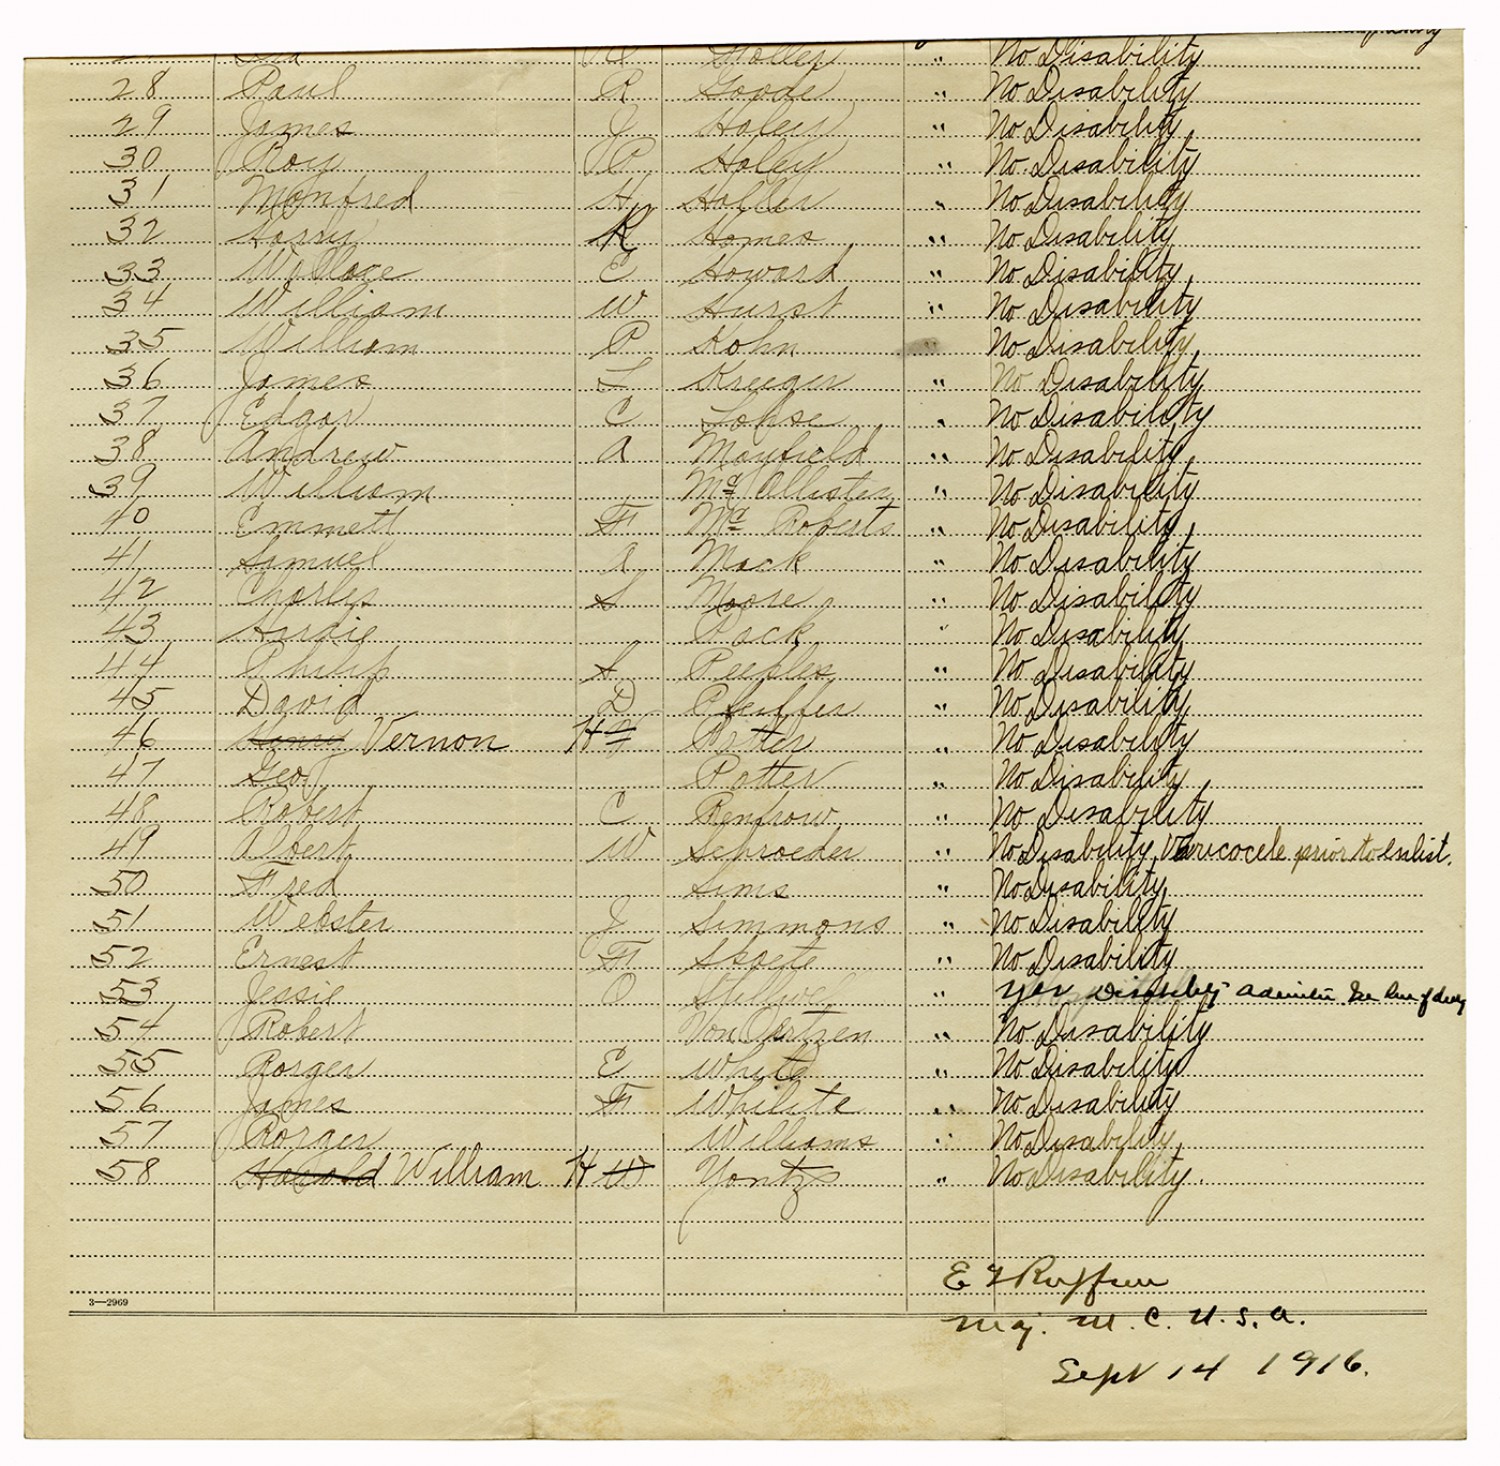 No Disability
28 Paul R Goode " No Disability
29 James J Haley " No Disability,
30 Roy P Haley " No Disability
31 Manfred H Haller " No Disability
32 Harry R Homes " No Disability
33 Wallace E Howard " No Disability,
34 William W Hurst " No Disability
35 William P Kohn " No Disability,
36 James L Krueger " No Disability
37 Edgar C Lohse " No Disability
38 Andrew A Mayfield " No Disability,
39 William Mc Allister " No Disability
40 Emmett F Mc Roberts " No Disability,
41 Samuel A Mack " No Disability
42 Charles S Moore " No Disability
43 Hardie Pack " No Disability
44 Philip S. Peeples " No Disability
45 David D Pfeiffer " No Disability
46 Henry Vernon H V " No Disability
47 Geo. Potter " No Disability
48 Robert C Renfrow " No Disability
49 Albert W Schroeder " No Disability, Varicocele prior to enlist.
50 Fred Sims " No Disability,
51 Webster J Simmons " No Disability
52 Ernest F " No Disability
53 Jessie O " Yes line of duty
54 Robert Von Oertzen " No Disability
55 Rorger E White " No Disability
56 James F Whilite " No Disability
57 Rorger Williams " No Disability,
58 Harold William H W Yontz " No Disability.
E F Ruffner
3—2969
Maj. M. C. U. S. A.
Sept 14 1916.